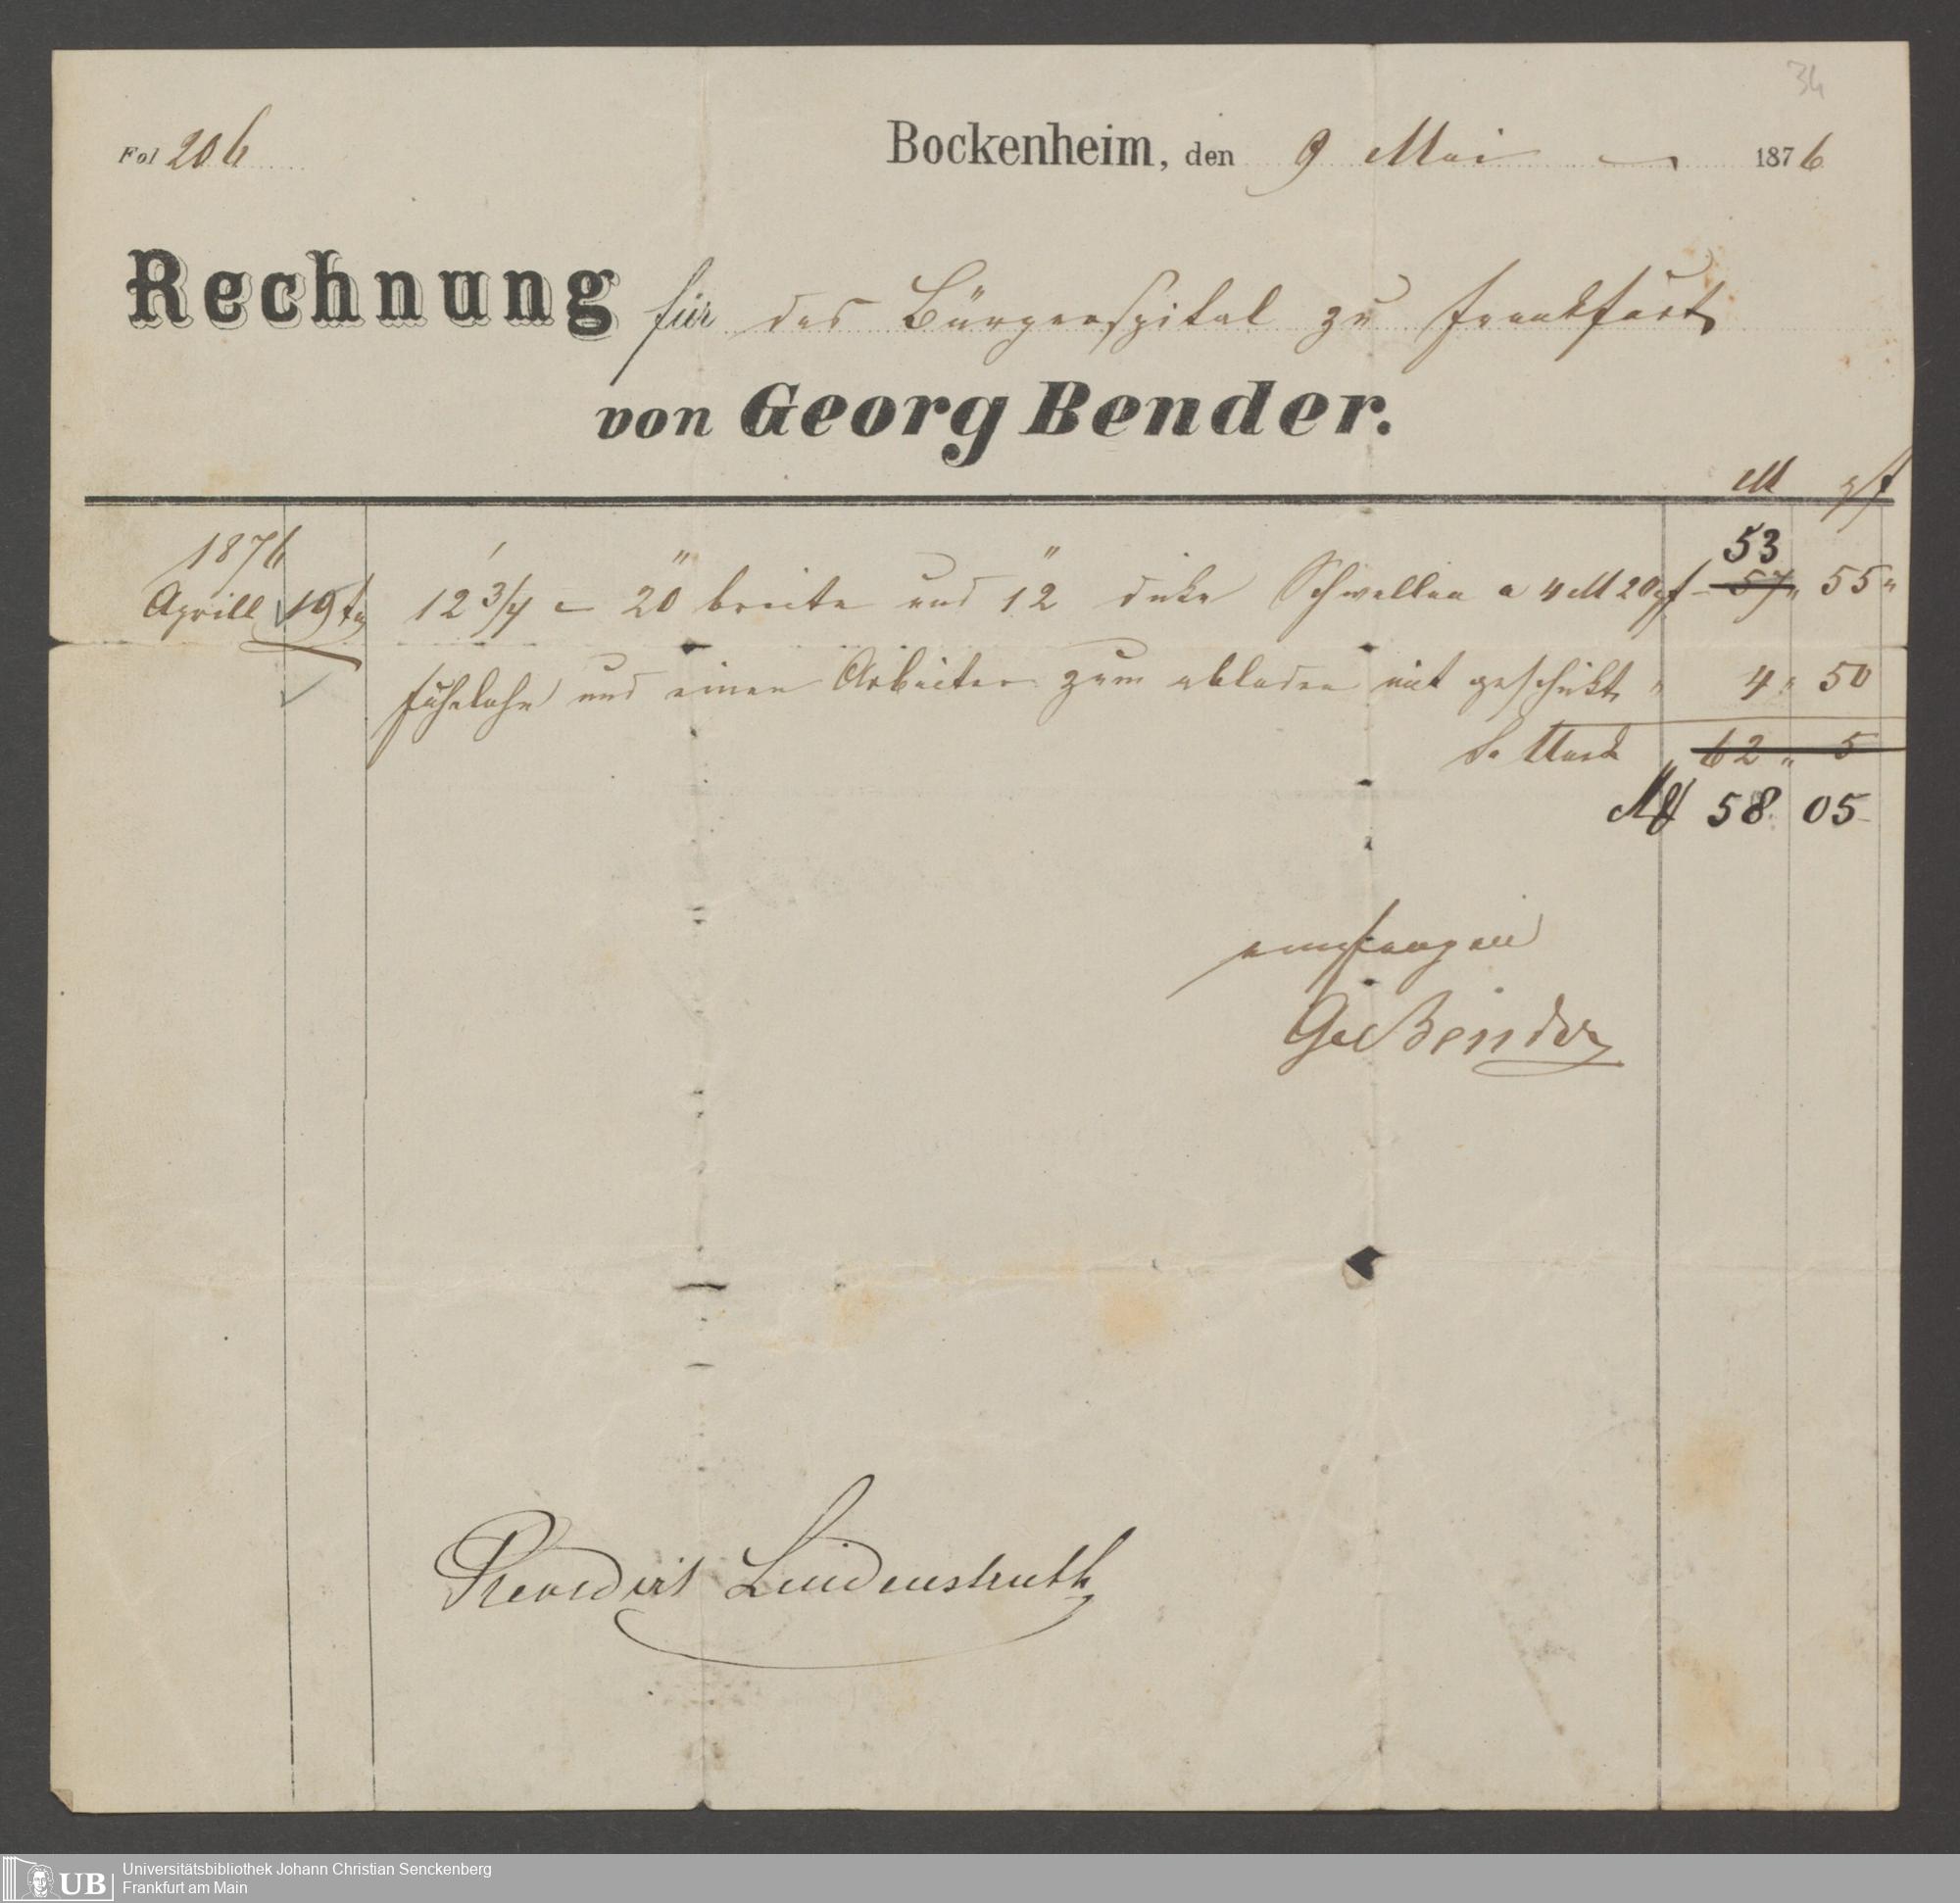 34
Fol 206
Bockenheim, den 9 Mai 1876
Rechnung für das Bürgerspital zu Frankfurt
von Georg Bender.
M pf
1876
53
Aprill 19tn 12 3/4' – 20" breite und 12" dicke Schwellen a 4 M 20 pf – 57 „ 55 „
Fuhrlohn und einen Arbeiter zum abladen mit geschikt „ 4 „ 50
Sa. Mark „ 62 „ 5
M 58 05
empfangen
Ge Bender
Lindenstruth
UB Universitätsbibliothek Johann Christian Senckenberg
Frankfurt am Main